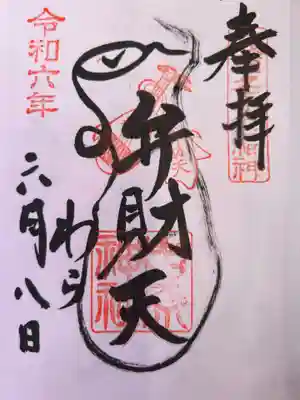 奉拝
弁財天
わら
令和六年
六月八日